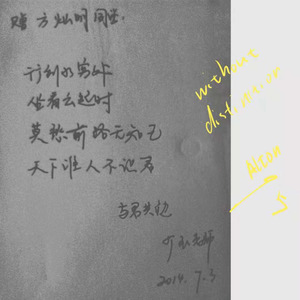 赠方灿明同学:
行到水穷处
坐看云起时
莫愁前路无知己
天下谁人不识君
与君共勉
老师
2014.7.3
without